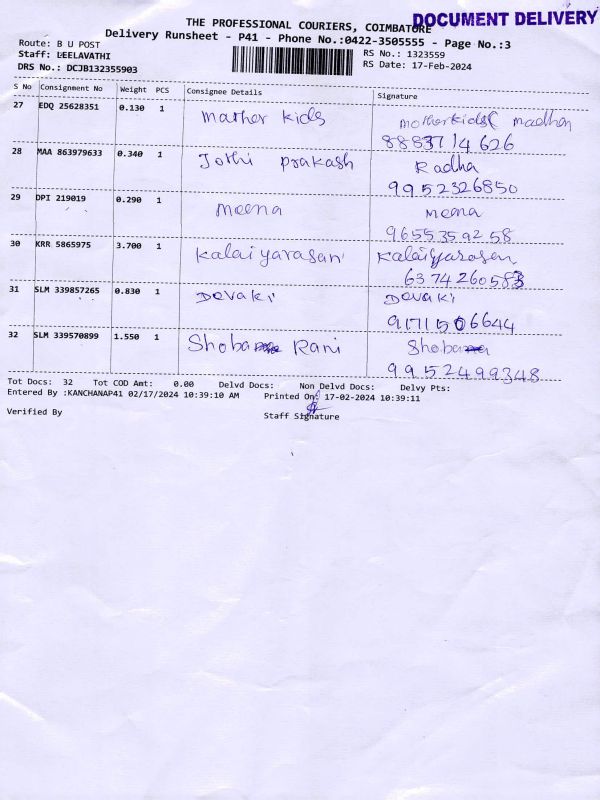 DOCUMENT DELIVERY
THE PROFESSIONAL COURIERS, COIMBATORE
Delivery Runsheet - P41 - Phone No.:0422-3505555 - Page No.:3
Route: B U POST
Staff: LEELAVATHI
DRS No.: DCJB132355903
RS No.: 1323559
RS Date: 17-Feb-2024
S No Consignment No Weight PCS Consignee Details Signature
27 EDQ 25628351 0.130 1 mather kids motherkids madhan
8883714626
28 MAA 863979633 0.340 1 Jothi prakash Radha
9952326850
29 DPI 219019 0.290 1 meena meena
9655359258
30 KRR 5865975 3.700 1 kalaiyarasan kalaiyarasan
6374260583
31 SLM 339857265 0.830 1 Devaki Devaki
9171506644
32 SLM 339570899 1.550 1 Shoba Rani Shoba
9952499348
Tot Docs: 32 Tot COD Amt: 0.00 Delvd Docs: Non Delvd Docs: Delvy Pts:
Entered By :KANCHANAP41 02/17/2024 10:39:10 AM Printed On: 17-02-2024 10:39:11
Verified By Staff Signature